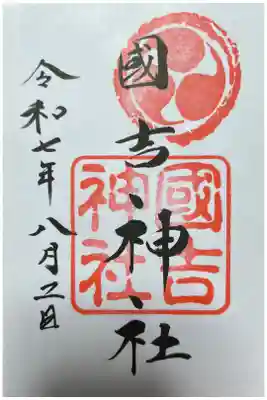 國吉神社
國吉
神社
令和七年八月二日